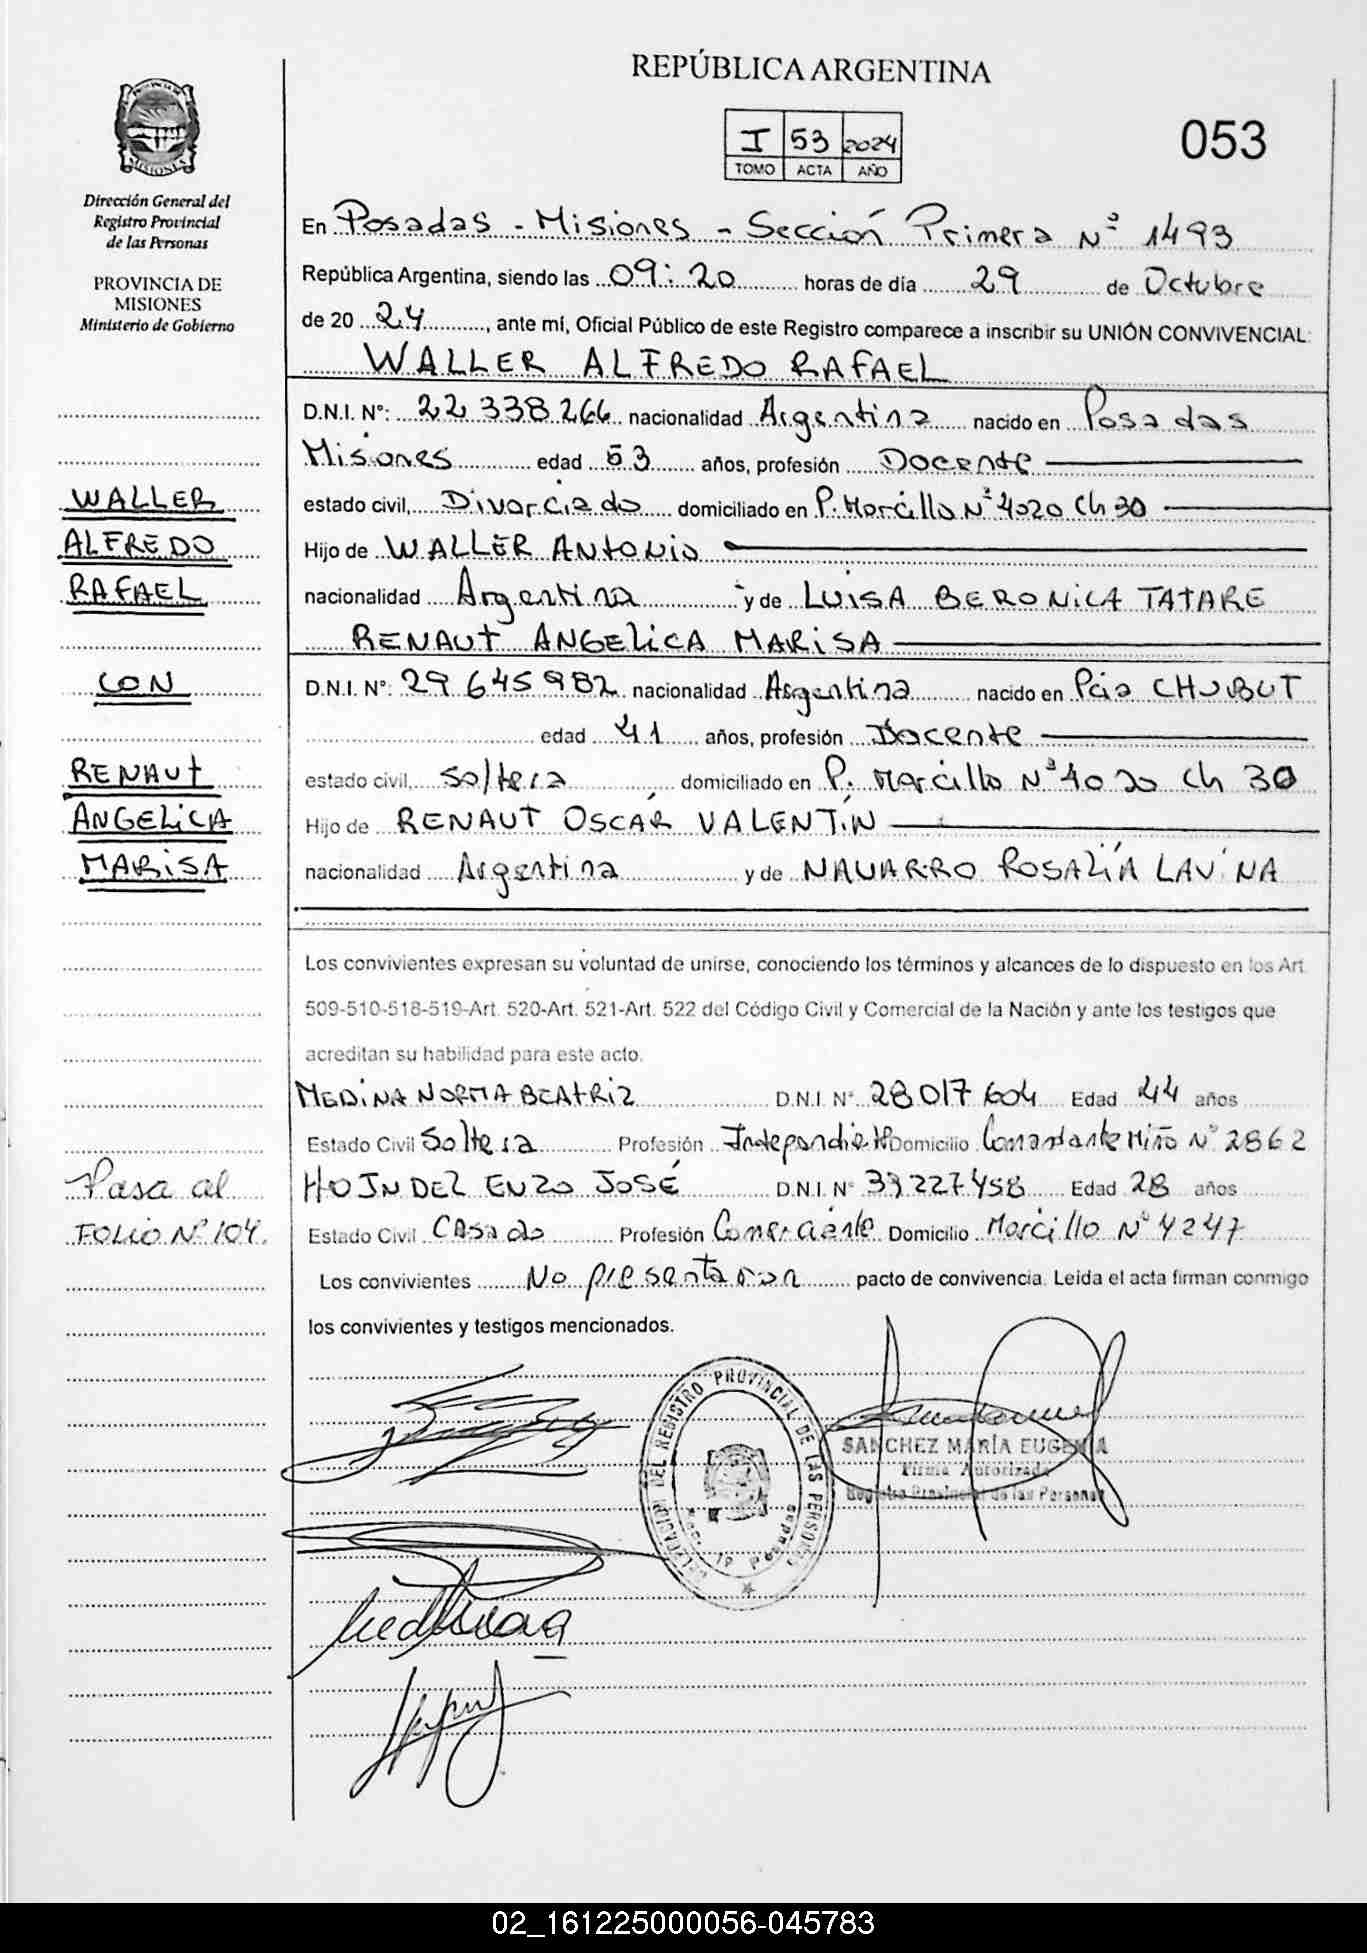 REPÚBLICA ARGENTINA
I 53 2024
TOMO ACTA AÑO
053
PROVINCIA DE MISIONES
Dirección General del
Registro Provincial
de las Personas
PROVINCIA DE
MISIONES
Ministerio de Gobierno
En Posadas - Misiones - Sección Primera Nº 1493
República Argentina, siendo las 09:20 horas de día 29 de Octubre
de 20 24, ante mí, Oficial Público de este Registro comparece a inscribir su UNIÓN CONVIVENCIAL:
WALLER ALFREDO RAFAEL
D.N.I. Nº: 22 338 266 nacionalidad Argentina nacido en Posadas
Misiones edad 53 años, profesión Docente
estado civil, Divorciado domiciliado en P. Morcillo Nº 4020 Ch 30
Hijo de WALLER ANTONIO
nacionalidad Argentina y de LUISA BERONICA TATARE
RENAUT ANGELICA MARISA
D.N.I. Nº: 29 645 982 nacionalidad Argentina nacido en Pcia CHUBUT
edad 41 años, profesión Docente
estado civil, Soltera domiciliado en P. Morcillo Nº 4020 Ch 30
Hijo de RENAUT OSCAR VALENTÍN
nacionalidad Argentina y de NAVARRO ROSALÍA LAVINA
WALLER
ALFREDO
RAFAEL
CON
RENAUT
ANGELICA
MARISA
Los convivientes expresan su voluntad de unirse, conociendo los términos y alcances de lo dispuesto en los Art.
509-510-518-519-Art. 520-Art. 521-Art. 522 del Código Civil y Comercial de la Nación y ante los testigos que
acreditan su habilidad para este acto.
MEDINA NORMA BEATRIZ D.N.I. Nº 28 017 604 Edad 44 años
Estado Civil Soltera Profesión Independiente Domicilio Comandante Miño Nº 2862
HOJNDEL ENZO JOSÉ D.N.I. Nº 39 227 458 Edad 28 años
Estado Civil Casado Profesión Comerciante Domicilio Morcillo Nº 4247
Los convivientes No presentaron pacto de convivencia. Leída el acta firman conmigo
los convivientes y testigos mencionados.
Pasa al
FOLIO Nº 104.
DELEGACION DEL REGISTRO PROVINCIAL DE LAS PERSONAS
Secc. 1ª Posadas
SANCHEZ MARÍA EUGENIA
Firma Autorizada
Registro Provincial de las Personas
02_161225000056-045783